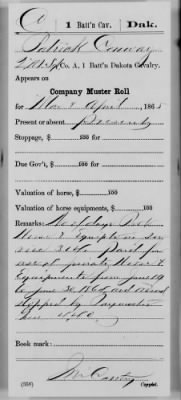 C | 1 Batt'n Cav. | Dak.
Patrick Conway
Co. A, 1 Batt'n Dakota Cavalry.
Appears on
Company Muster Roll
for Mar & April, 1865
Present or absent Present
Stoppage, $ 100 for
Due Gov't, $ 100 for
Valuation of horse, $ 100
Valuation of horse equipments, $ 100
Remarks: No of days Pvt
Horse & Equipts in ser
vice
use of private Horse &
Equipments from June 19
to June 30, 1864
stopped by Paymaster
Book mark:
(358) Copyist.